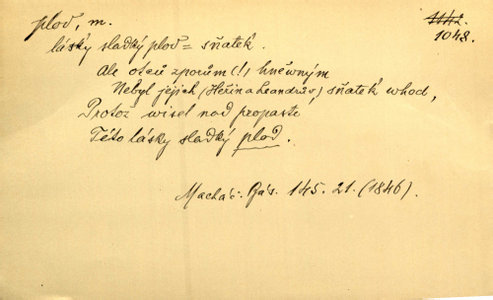 plod, m.
1112.
1048.
lásky sladký plod = sňatek.
Ale otců zporům (!) hněwným
Nebyl jejich (Heřin a Leandrův) sňatek whod,
Protož wisel nad propastí
Této lásky sladký plod.
Macháč. Bás. 145. 21. (1846).